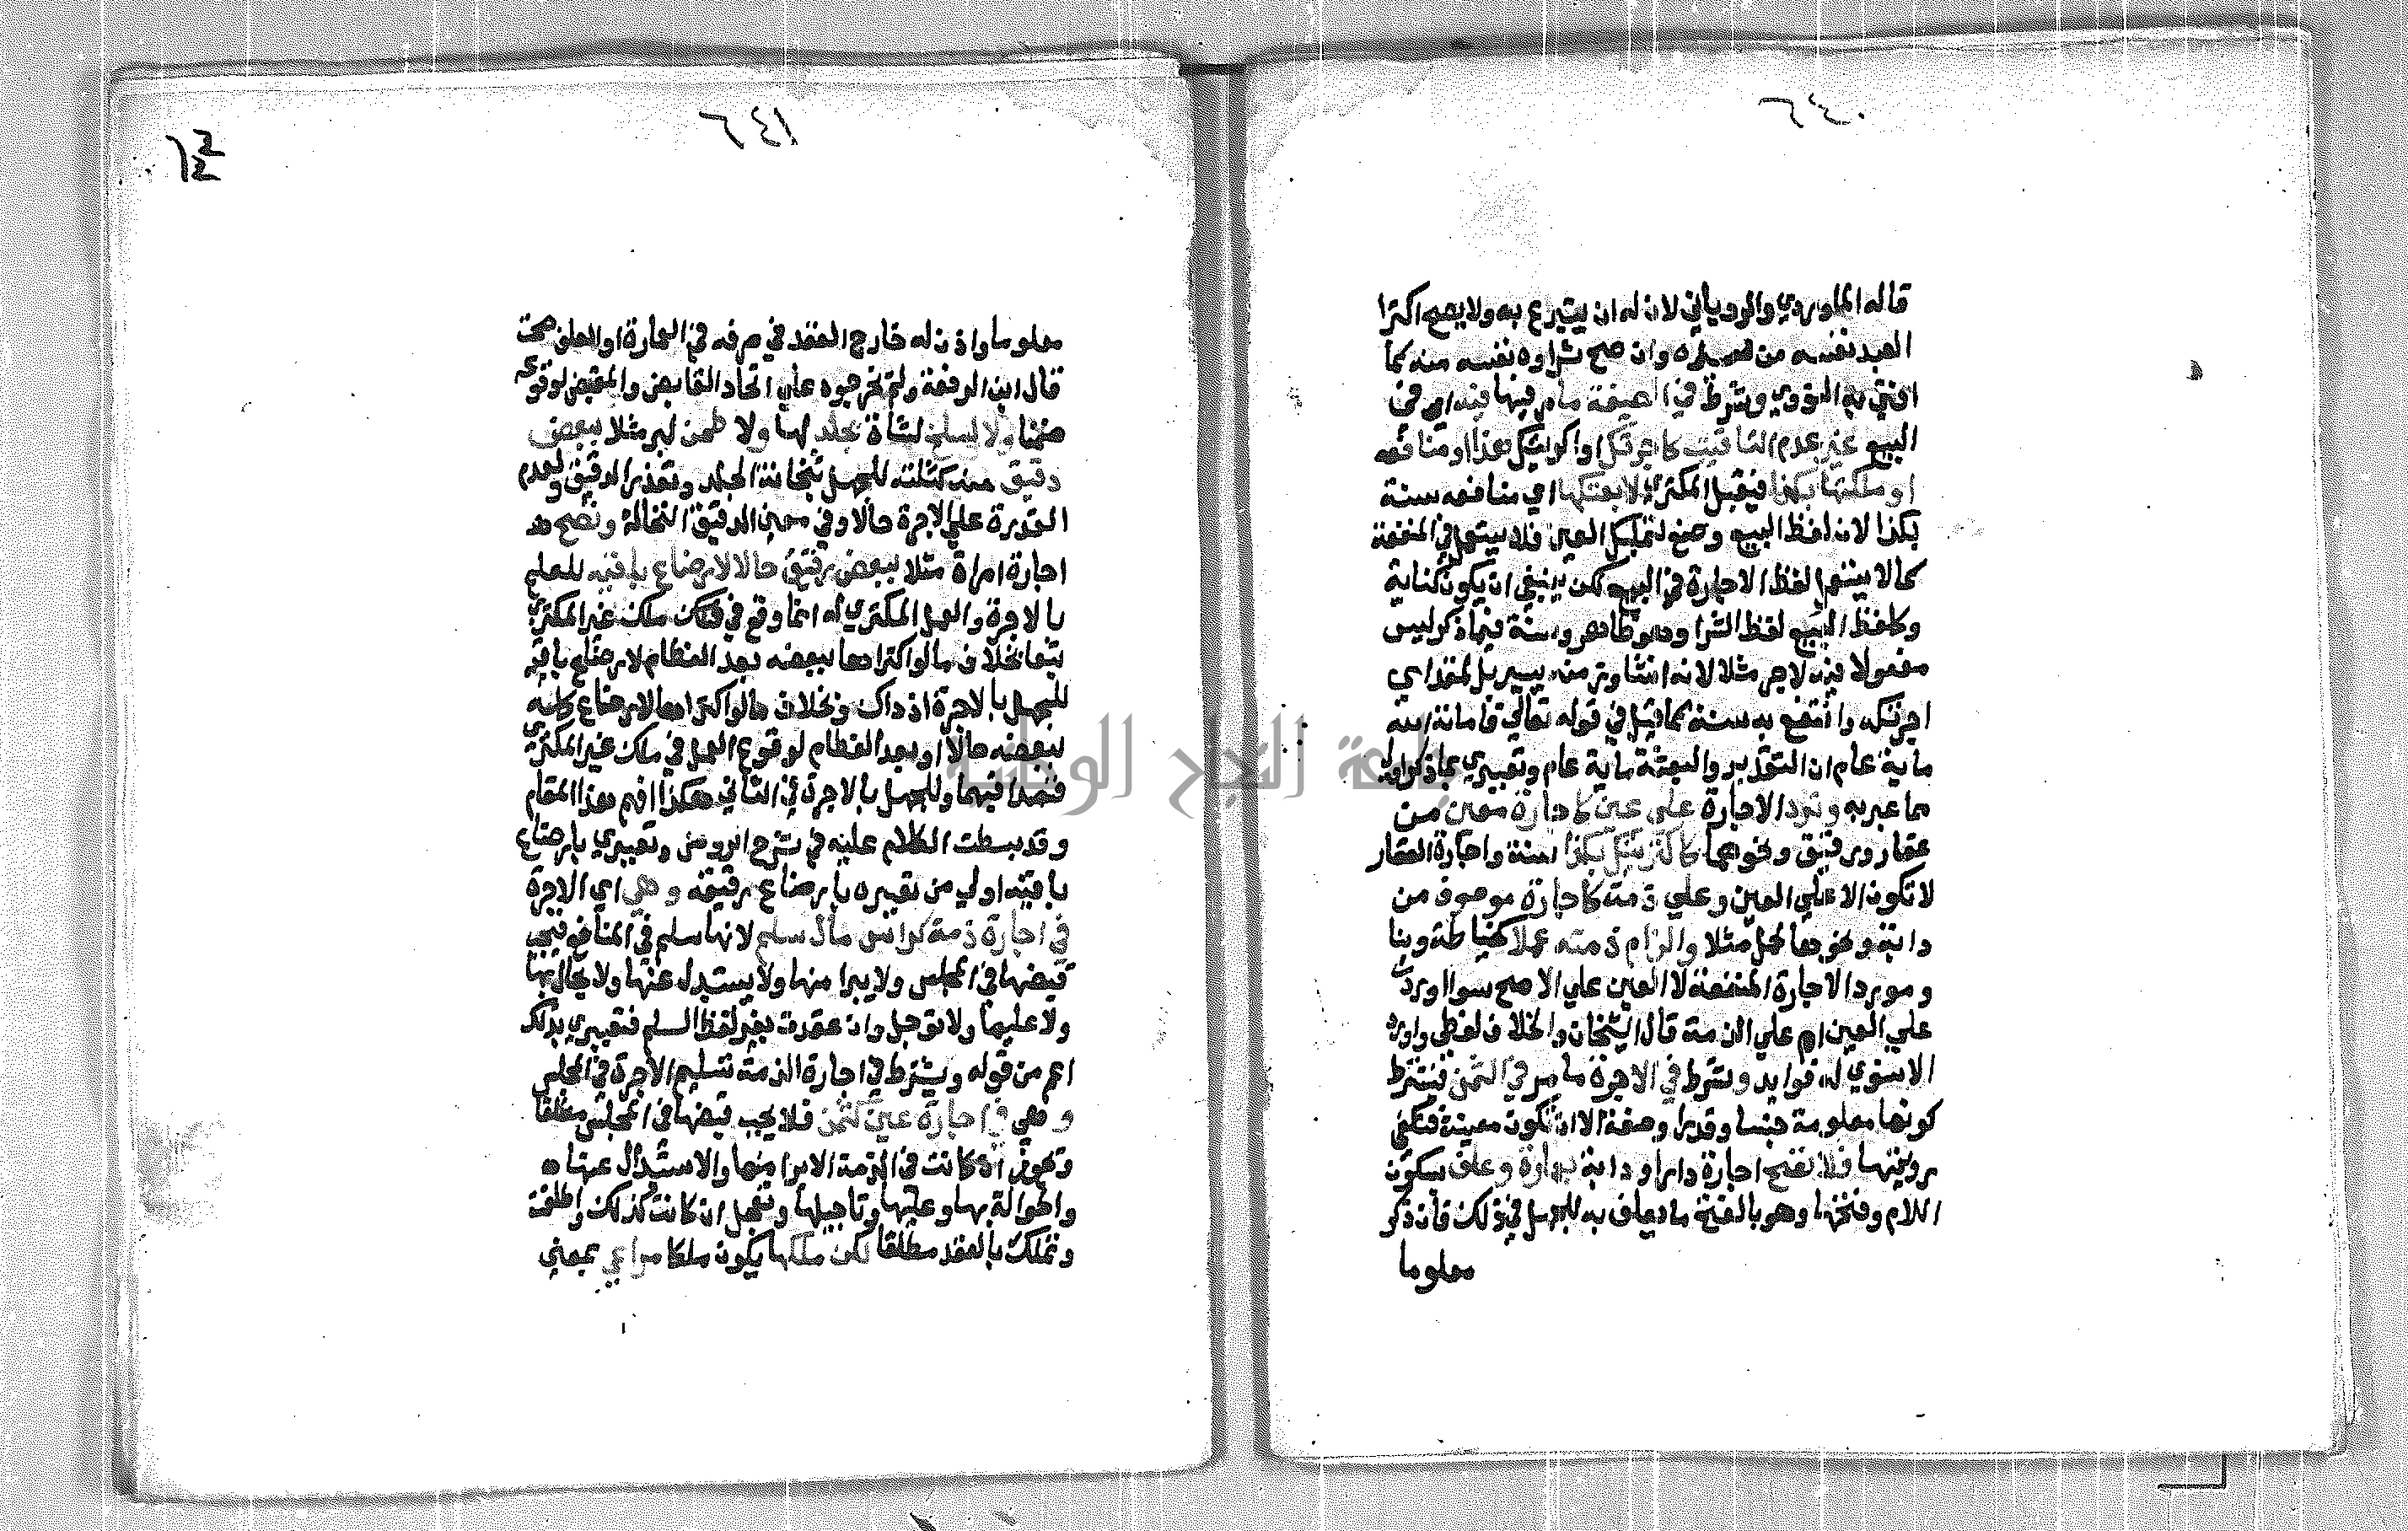 ٦٤٠
قاله الماوردي والروياني لان له ان يتبرع به ولا يصح اكترا
العبد نفسه من وان صح شراوه نفسه منه كما
افتي به النووي وشرط في الصيغة ما مر فيها فيه اي في
البيع غير عدم التاقيت كاجرتك او اكريتك هذا او منافعه
او ملكتها بكذا فيقبل المكتري لا بعتكها اي منافعه سنة
بكذا لان لفظ البيع وضع لتمليك العين فلا يستعمل في المنفعة
كما لا يستعمل لفظ الاجارة في البيع لكن ينبغي ان يكون كناية
وكلفظ البيع لفظ الشرا وهو ظاهر وسنة فيما ذكر ليس
مفعولا فيه لاجر مثلا لانه انشا وزمنه يسير بل لمقدر اي
اجرتكه وانتفع به سنة كما قيل في قوله تعالي فاماته الله
ماية عام ان التقدير والبعثة ماية عام وتعبيري بما ذكر اولي
مما عبر به وترد الاجارة علي عين كاجارة معين من
عقار ورقيق ونحوهما كاكتريتك بكذا سنة واجارة العقار
لا تكون الا علي العين وعلي ذمة كاجارة موصوف من
دابة ونحوها لحمل مثلا والزام ذمته عملا كخياطة وبنا
ومورد الاجارة المنفعة لا العين علي الاصح سوا اوردت
علي العين ام علي الذمة قال الشيخان والخلاف لفظي واورد
الاسنوي له فوايد وشرط في الاجرة ما مر في الثمن فيشترط
كونها معلومة جنسا وقدرا وصفة الا ان تكون معينة فتكفي
رويتها فلا تصح اجارة دار او دابة بعمارة وعلف بسكون
اللام وفتحها وهو بالفتح ما يعلف به للجهل في ذلك فان ذكر
معلوما
٦٤١
معلوما واذن له خارج العقد في صرفه في العمارة او العلف صحت
قال ابن الرفعة ولم يخرجوه علي اتحاد القابض والمقبض لوقوعه
ضمنا ولا لسلخ لشاة بجلد لها ولا طحن لبر مثلا ببعض
دقيق منه كثلثه للجهل بثخانة الجلد وبقدر الدقيق ولعدم
القدرة علي الاجرة حالا وفي معني الدقيق النخالة وتصح
اجارة امراة مثلا ببعض رقيق حالا لارضاع باقيه للعلم
بالاجرة والعمل المكتري له انما وقع في ملك غير المكتري
تبعا بخلاف ما لو اكتراها ببعضه بعد الفطام لارضاع باقيه
للجهل بالاجرة اذ ذاك وبخلاف ما لو اكتراها لارضاع كله
ببعضه حالا او بعد الفطام لوقوع العمل في ملك غير المكتري
قصدا فيهما وللجهل بالاجرة في الثاني هكذا افهم هذا المقام
وقد بسطت الكلام عليه في شرح الروض وتعبيري بارضاع
باقيه اولي من تعبيره بارضاع رقيقه وهي اي الاجرة
في اجارة ذمة كراس مال سلم لانها سلم في المنافع فيجب
قبضها في المجلس ولا يبرا منها ولا يستبدل عنها ولا يحال بها
ولا عليها ولا توجل وان عقدت بغير لفظ السلم فتعبيري بذلك
اعم من قوله ويشترط في اجارة الذمة تسليم الاجرة في المجلس
وهي في اجارة عين كثمن فلا يجب قبضها في المجلس مطلقا
ويجوز ان كانت في الذمة الابرا منها والاستبدال عنها
والحوالة بها وعليها وتاجيلها وتعجل ان كانت كذلك واطلقت
وتملك بالعقد مطلقا لكن ملكها يكون ملكا مراعي بمعني
جامعة النجاح الوطنية